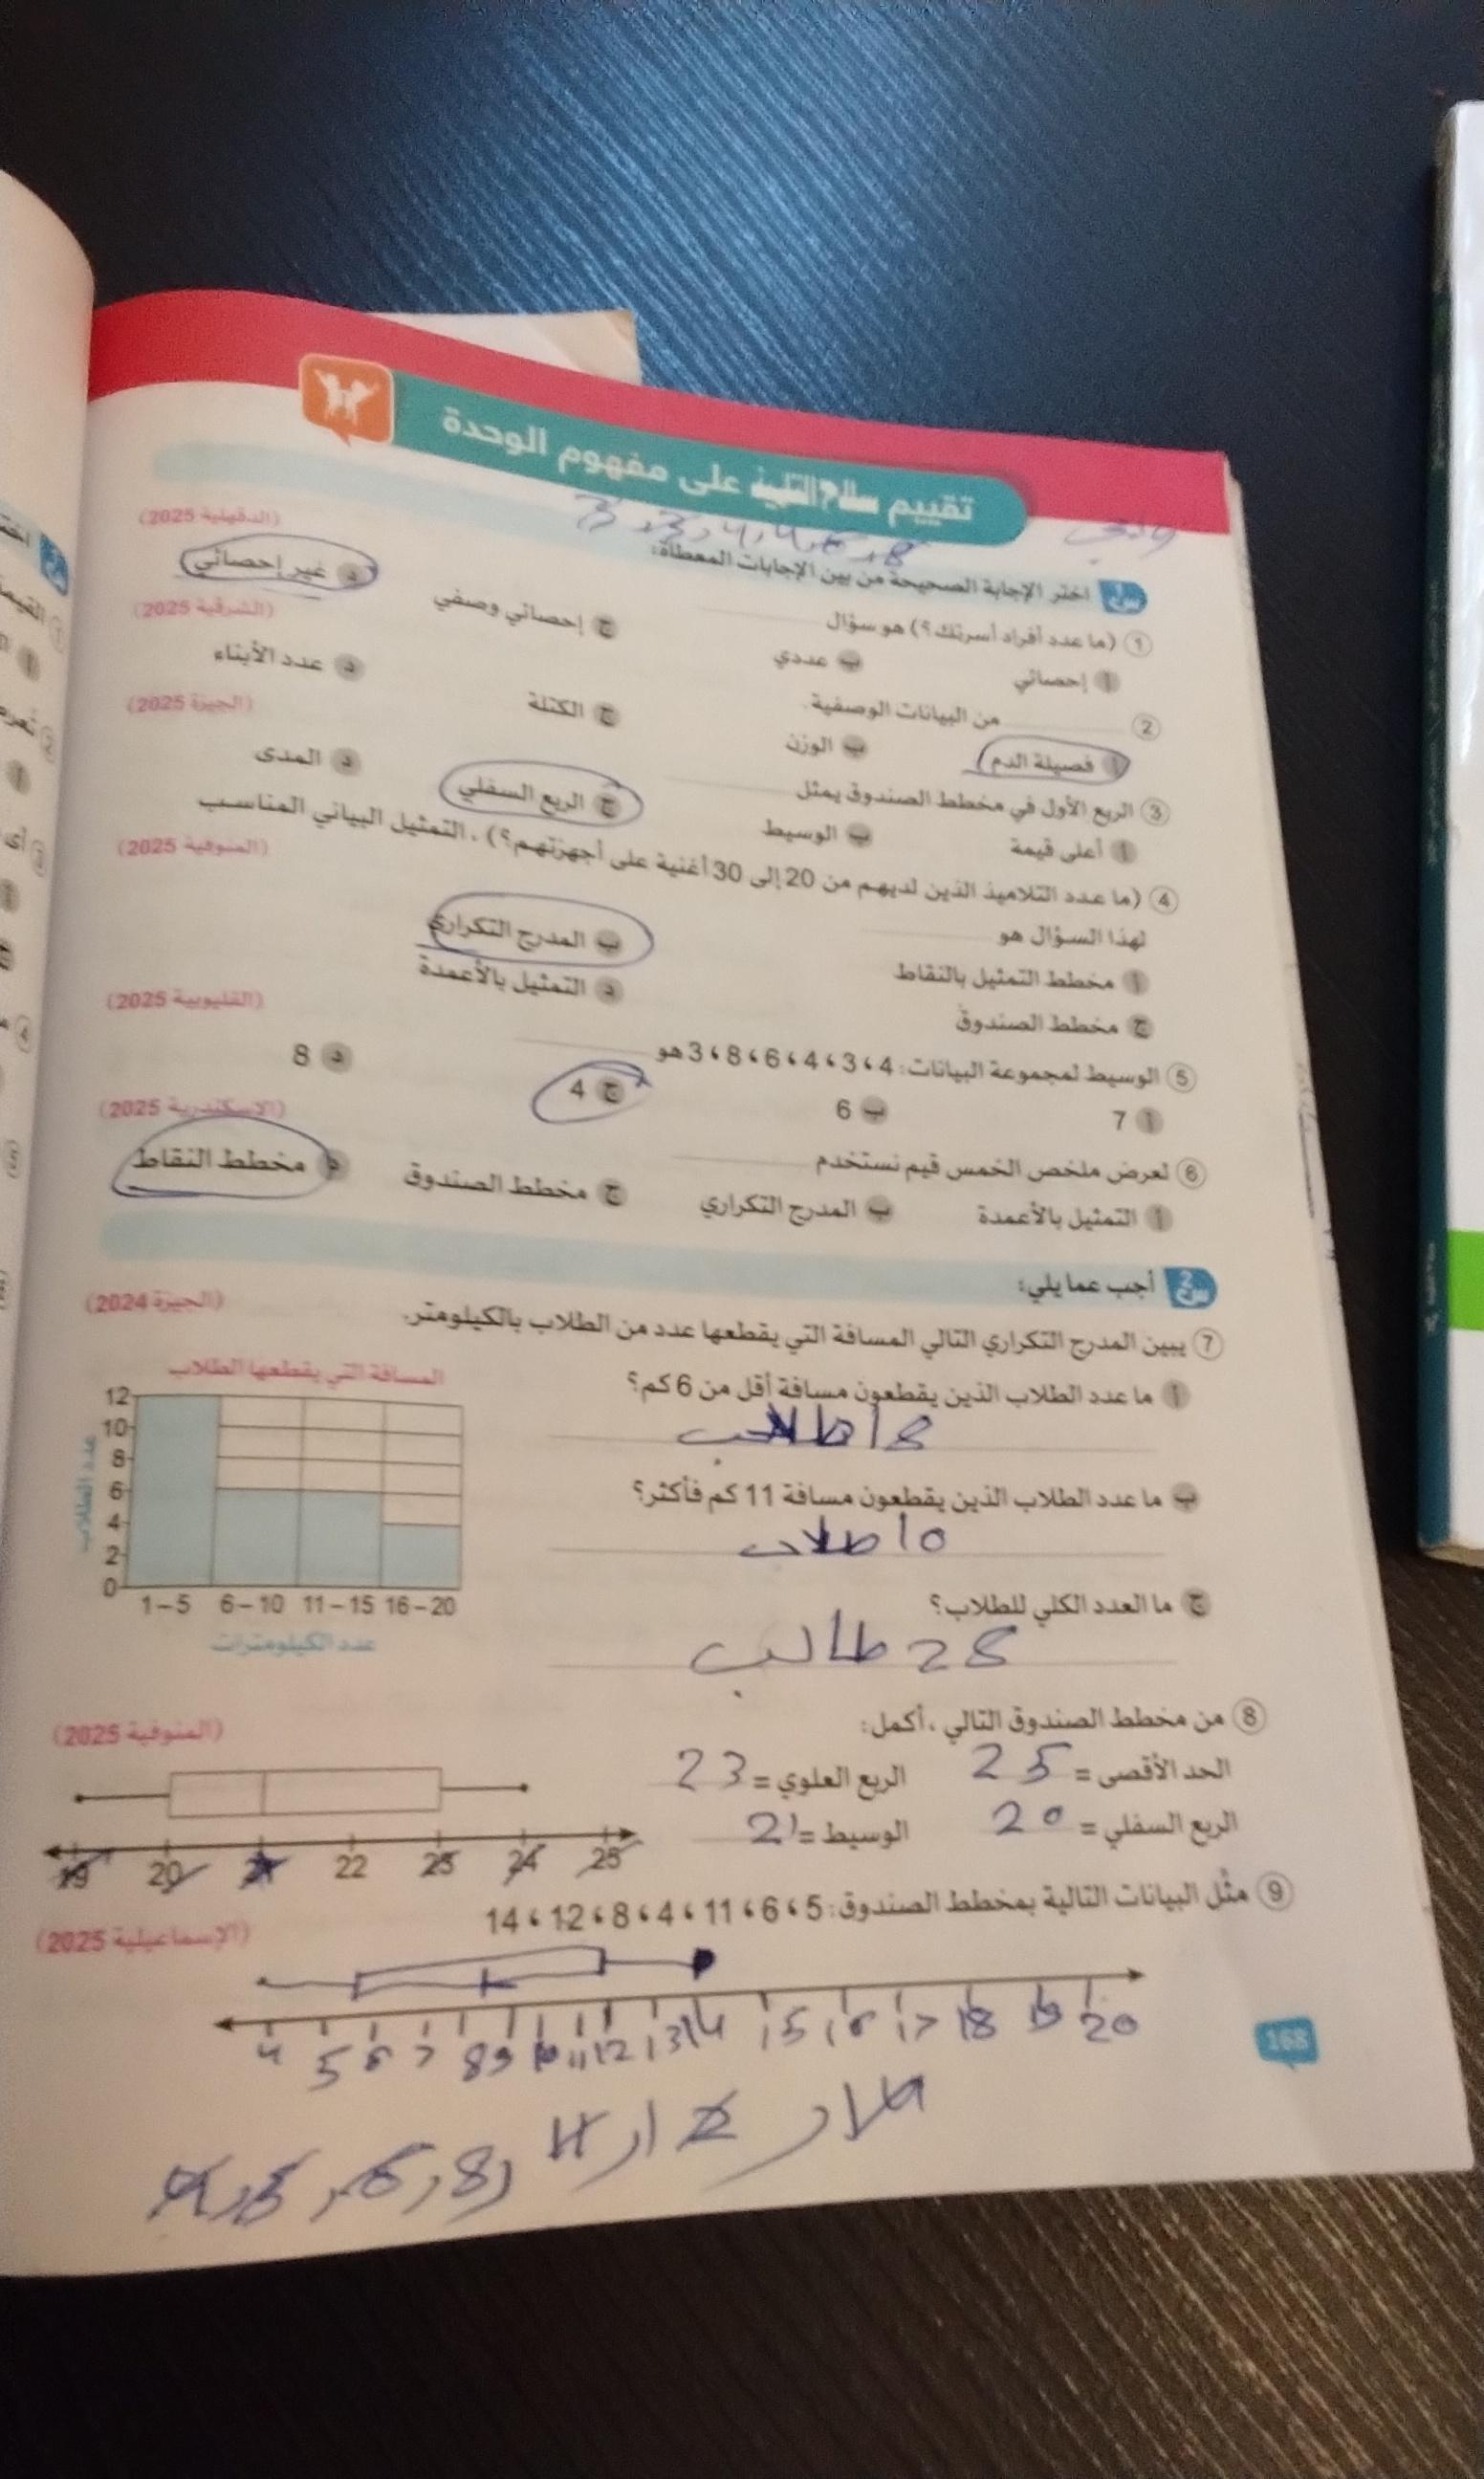 تقييم سلاح التلميذ على مفهوم الوحدة
واجب
3 , 3 , 4 , 4 , 6 , 8
س1 اختر الإجابة الصحيحة من بين الإجابات المعطاة:
① (ما عدد أفراد أسرتك؟) هو سؤال (الدقهلية 2025)
أ إحصائي ب عددي ج إحصائي وصفي د غير إحصائي
② من البيانات الوصفية. (الشرقية 2025)
أ فصيلة الدم ب الوزن ج الكتلة د عدد الأبناء
③ الربع الأول في مخطط الصندوق يمثل (الجيزة 2025)
أ أعلى قيمة ب الوسيط ج الربع السفلي د المدى
④ (ما عدد التلاميذ الذين لديهم من 20 إلى 30 أغنية على أجهزتهم؟)، التمثيل البياني المناسب
لهذا السؤال هو (المنوفية 2025)
أ مخطط التمثيل بالنقاط ب المدرج التكراري
ج مخطط الصندوق د التمثيل بالأعمدة
⑤ الوسيط لمجموعة البيانات: 4، 3، 4، 6، 8، 3 هو (القليوبية 2025)
أ 7 ب 6 ج 4 د 8
⑥ لعرض ملخص الخمس قيم نستخدم (الإسكندرية 2025)
أ التمثيل بالأعمدة ب المدرج التكراري ج مخطط الصندوق د مخطط النقاط
س2 أجب عما يلي:
⑦ يبين المدرج التكراري التالي المسافة التي يقطعها عدد من الطلاب بالكيلومتر. (الجيزة 2024)
أ ما عدد الطلاب الذين يقطعون مسافة أقل من 6 كم؟
ب ما عدد الطلاب الذين يقطعون مسافة 11 كم فأكثر؟
طلاب
ج ما العدد الكلي للطلاب؟
28 طالب
المسافة التي يقطعها الطلاب
عدد الطلاب
12
10
8
6
4
2
0
1 – 5 6 – 10 11 – 15 16 – 20
عدد الكيلومترات
⑧ من مخطط الصندوق التالي، أكمل: (المنوفية 2025)
الحد الأقصى = 25 الربع العلوي = 23
الربع السفلي = 20 الوسيط = 21
19 20 21 22 23 24 25
⑨ مثل البيانات التالية بمخطط الصندوق: 5، 6، 11، 4، 8، 12، 14 (الإسماعيلية 2025)
4 5 6 7 8 9 10 11 12 13 14 15 16 17 18 19 20
4 , 5 , 6 , 8 , 11 , 12 , 14
168